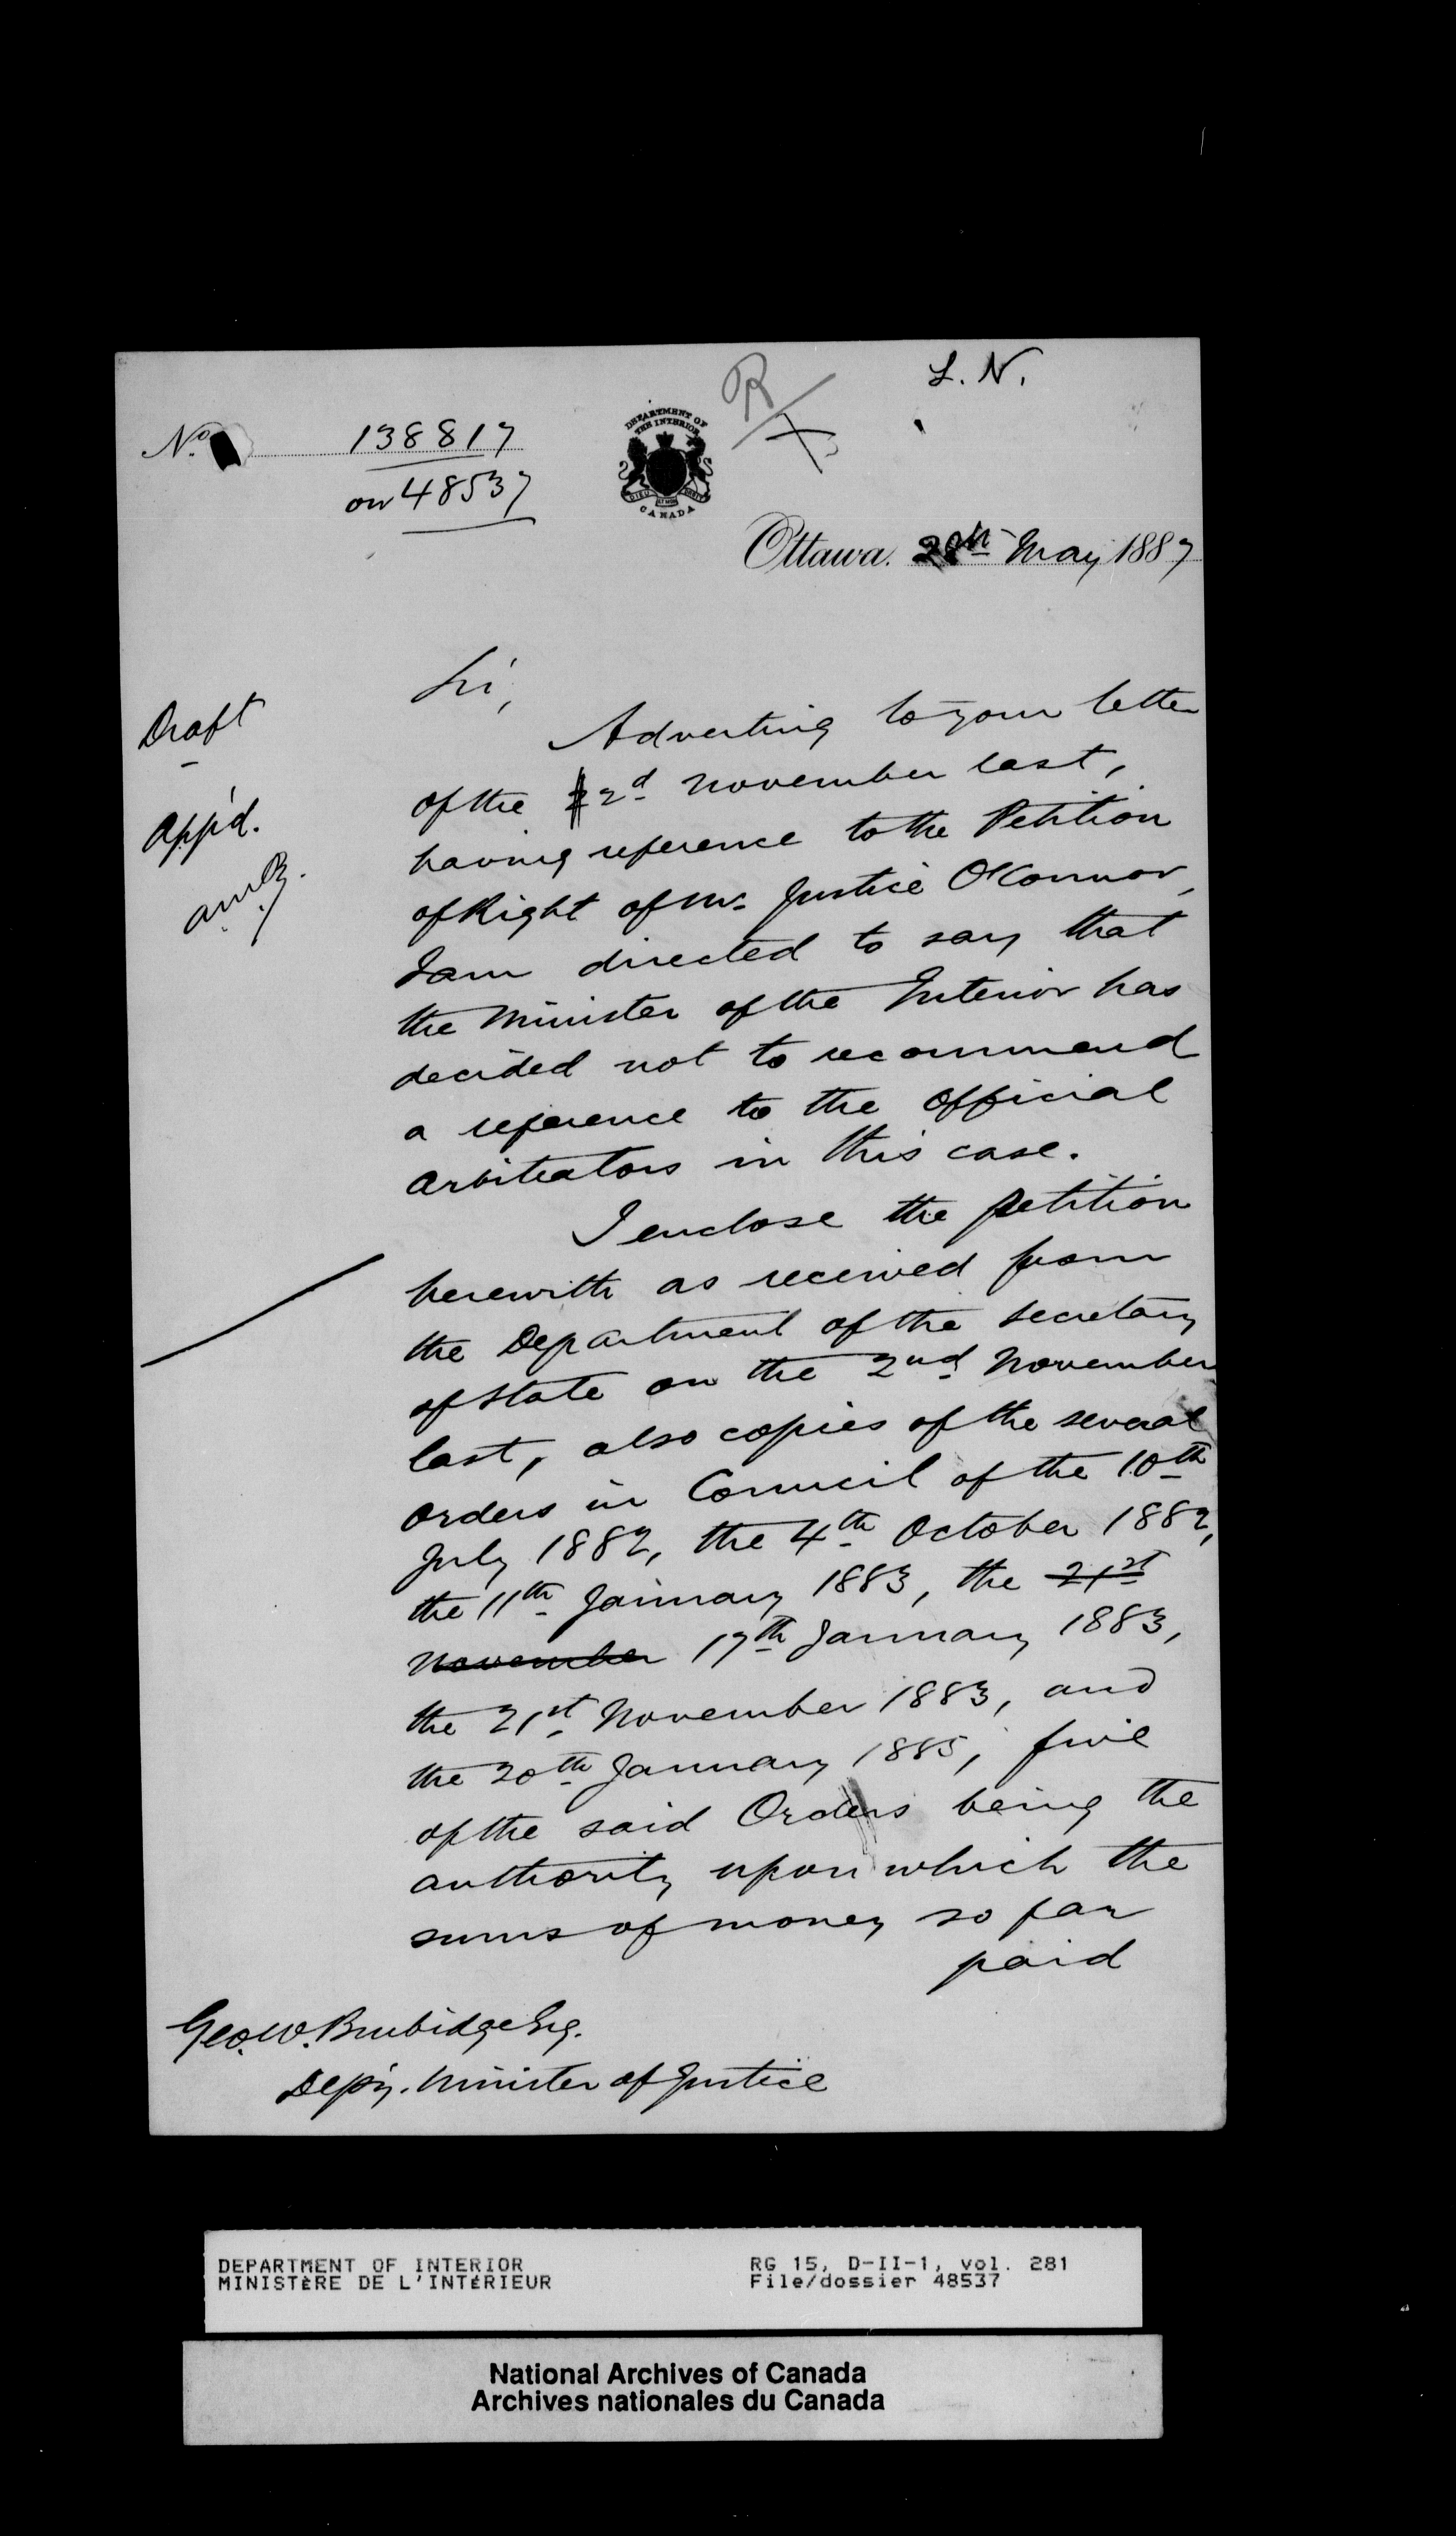 L. N.
R
No. 138817
on 48537
DEPARTMENT OF
THE INTERIOR
CANADA
Ottawa. 28th May 1887
Draft
App'd.
Sir,
Adverting to your letter
of the 2d November last,
having reference to the Petition
of Right of Mr. Justice O'Connor,
I am directed to say that
the Minister of the Interior has
decided not to recommend
a reference to the Official
Arbitrators in this case.
I enclose the petition
herewith as received from
the Department of the Secretary
of State on the 2nd November
last, also copies of the several
Orders in Council of the 10th
July 1882, the 4th October 1882,
the 11th January 1883, the 21st
November 17th January 1883,
the 21st November 1883, and
the 20th January 1885, five
of the said Orders being the
authority upon which the
sums of money so far
paid
Geo. W. Burbidge Esq.
Depy. Minister of Justice
DEPARTMENT OF INTERIOR
MINISTÈRE DE L'INTÉRIEUR
RG 15, D-II-1, vol. 281
File/dossier 48537
National Archives of Canada
Archives nationales du Canada